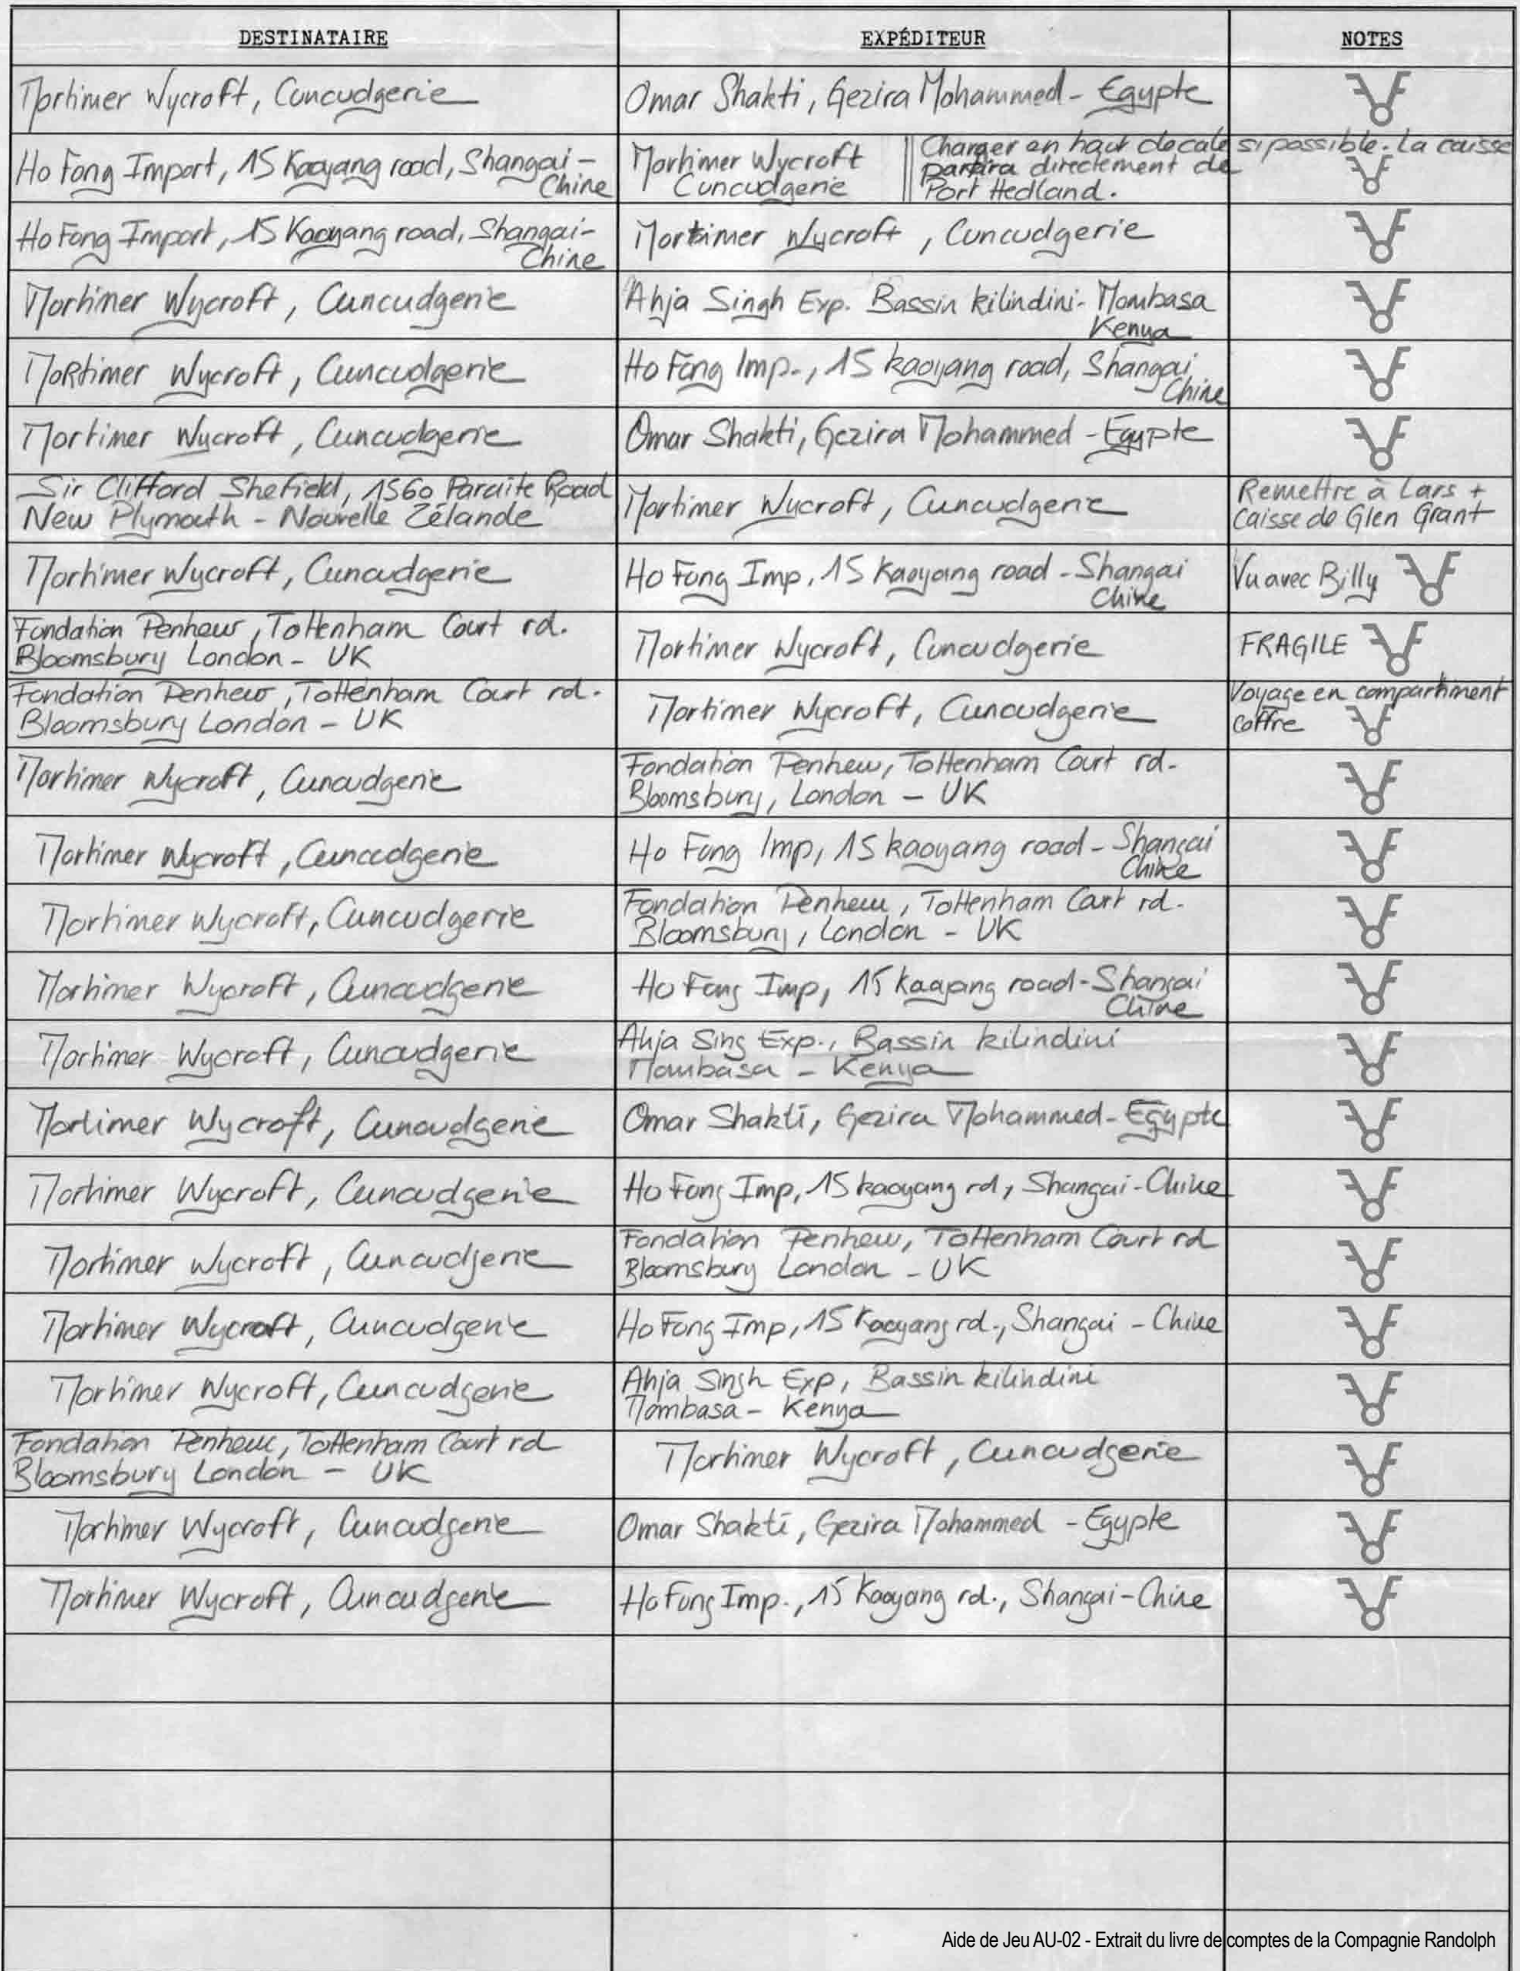 DESTINATAIRE EXPÉDITEUR NOTES
Mortimer Wycroft, Cuncudgerie Omar Shakti, Gezira Mohammed - Egypte
Ho Fong Import, 15 Kaoyang road, Shangai - Mortimer Wycroft Charger en haut de cale si possible. La caisse
Chine Cuncudgerie partira directement de
Port Hedland.
Ho Fong Import, 15 Kaoyang road, Shangai- Mortimer Wycroft, Cuncudgerie
Chine
Mortimer Wycroft, Cuncudgerie Ahja Singh Exp. Bassin kilindini - Mombasa
Kenya
Mortimer Wycroft, Cuncudgerie Ho Fong Imp., 15 kaoyang road, Shangai
- Chine
Mortimer Wycroft, Cuncudgerie Omar Shakti, Gezira Mohammed - Egypte
Sir Clifford Shefield, 1560 Paraite Road Mortimer Wycroft, Cuncudgerie Remettre à Lars +
New Plymouth - Nouvelle Zélande Caisse de Glen Grant
Mortimer Wycroft, Cuncudgerie Ho Fong Imp, 15 Kaoyang road - Shangai Vu avec Billy
Chine
Fondation Penhew, Tottenham Court rd. Mortimer Wycroft, Cuncudgerie FRAGILE
Bloomsbury London - UK
Fondation Penhew, Tottenham Court rd. Mortimer Wycroft, Cuncudgerie Voyage en compartiment
Bloomsbury London - UK coffre
Mortimer Wycroft, Cuncudgerie Fondation Penhew, Tottenham Court rd.
Bloomsbury, London - UK
Mortimer Wycroft, Cuncudgerie Ho Fong Imp, 15 kaoyang road - Shangai
Chine
Mortimer Wycroft, Cuncudgerie Fondation Penhew, Tottenham Court rd.
Bloomsbury, London - UK
Mortimer Wycroft, Cuncudgerie Ho Fong Imp, 15 kaoyang road - Shangai
Chine
Mortimer Wycroft, Cuncudgerie Ahja Sing Exp., Bassin kilindini
Mombasa - Kenya
Mortimer Wycroft, Cuncudgerie Omar Shakti, Gezira Mohammed - Egypte
Mortimer Wycroft, Cuncudgerie Ho Fong Imp, 15 kaoyang rd, Shangai - Chine
Mortimer Wycroft, Cuncudgerie Fondation Penhew, Tottenham Court rd
Bloomsbury London - UK
Mortimer Wycroft, Cuncudgerie Ho Fong Imp, 15 Kaoyang rd., Shangai - Chine
Mortimer Wycroft, Cuncudgerie Ahja Singh Exp, Bassin kilindini
Mombasa - Kenya
Fondation Penhew, Tottenham Court rd Mortimer Wycroft, Cuncudgerie
Bloomsbury London - UK
Mortimer Wycroft, Cuncudgerie Omar Shakti, Gezira Mohammed - Egypte
Mortimer Wycroft, Cuncudgerie Ho Fong Imp., 15 Kaoyang rd., Shangai - Chine
Aide de Jeu AU-02 - Extrait du livre de comptes de la Compagnie Randolph